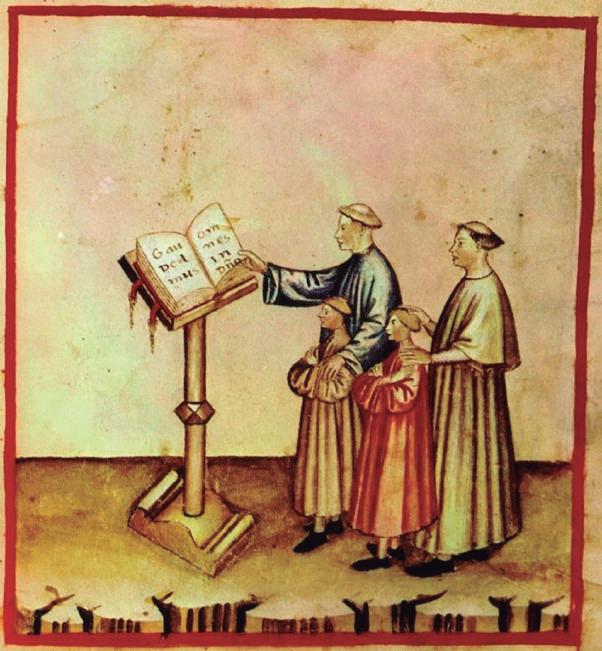 Gau
deā
mus
om
nes
in
dño